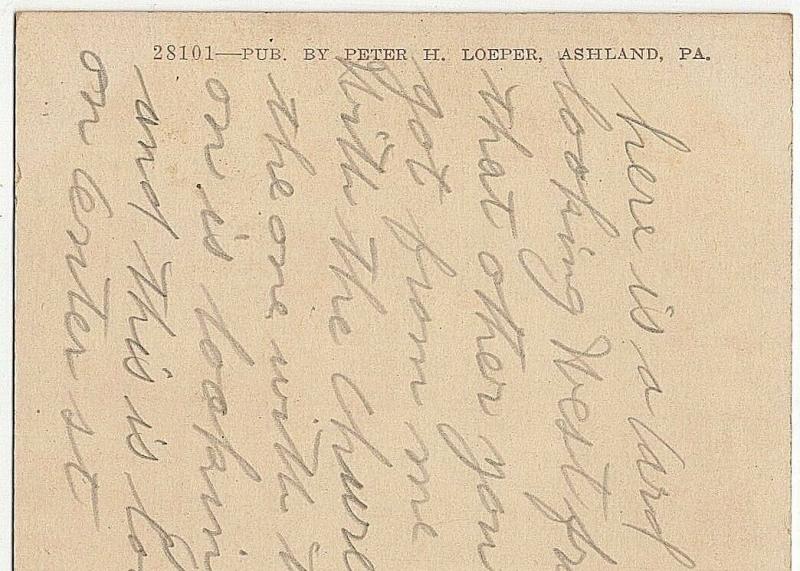 28101—PUB. BY PETER H. LOEPER, ASHLAND, PA.
here is a Card
looking West
that other you
got from me
With the
the one with
on is
and this is
on Center st